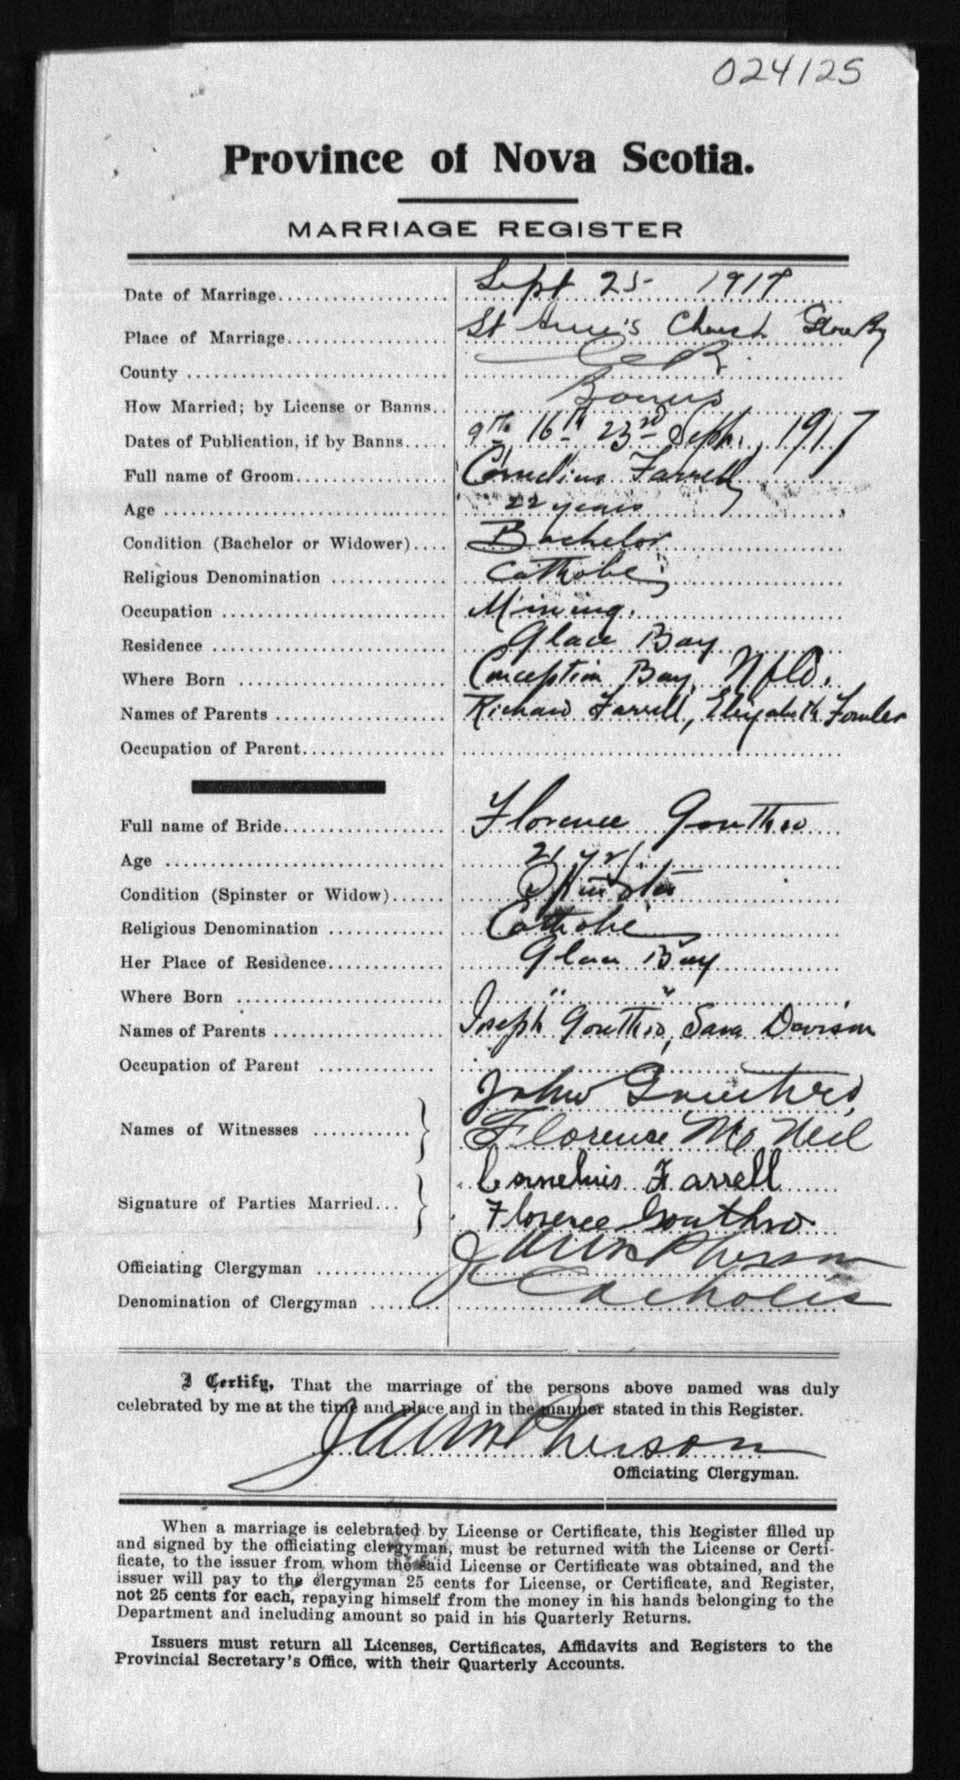 024125
Province of Nova Scotia.
MARRIAGE REGISTER
Date of Marriage Sept 25 1917
Place of Marriage St Anne's Church Glace Bay
County C B
How Married; by License or Banns Banns
Dates of Publication, if by Banns 9th 16th 23rd Sept., 1917
Full name of Groom Cornelius Farrell
Age 22 years
Condition (Bachelor or Widower) Bachelor
Religious Denomination Catholic
Occupation Mining.
Residence Glace Bay
Where Born Conception Bay, Nfld.
Names of Parents Richard Farrell, Elizabeth Fowler
Occupation of Parent
Full name of Bride Florence Gouthro
Age 21 yrs.
Condition (Spinster or Widow) Spinster
Religious Denomination Catholic
Her Place of Residence Glace Bay
Where Born " "
Names of Parents Joseph Gouthro, Sara Davison
Occupation of Parent
John Gouthro,
Names of Witnesses
Florence Mc Neil
Cornelius Farrell
Signature of Parties Married
Florence Gouthro
Officiating Clergyman J A M McPherson
Denomination of Clergyman Catholic
I Certify, That the marriage of the persons above named was duly
celebrated by me at the time and place and in the manner stated in this Register.
J A M McPherson
Officiating Clergyman.
When a marriage is celebrated by License or Certificate, this Register filled up
and signed by the officiating clergyman, must be returned with the License or Certi-
ficate, to the issuer from whom the said License or Certificate was obtained, and the
issuer will pay to the clergyman 25 cents for License, or Certificate, and Register,
not 25 cents for each, repaying himself from the money in his hands belonging to the
Department and including amount so paid in his Quarterly Returns.
Issuers must return all Licenses, Certificates, Affidavits and Registers to the
Provincial Secretary's Office, with their Quarterly Accounts.